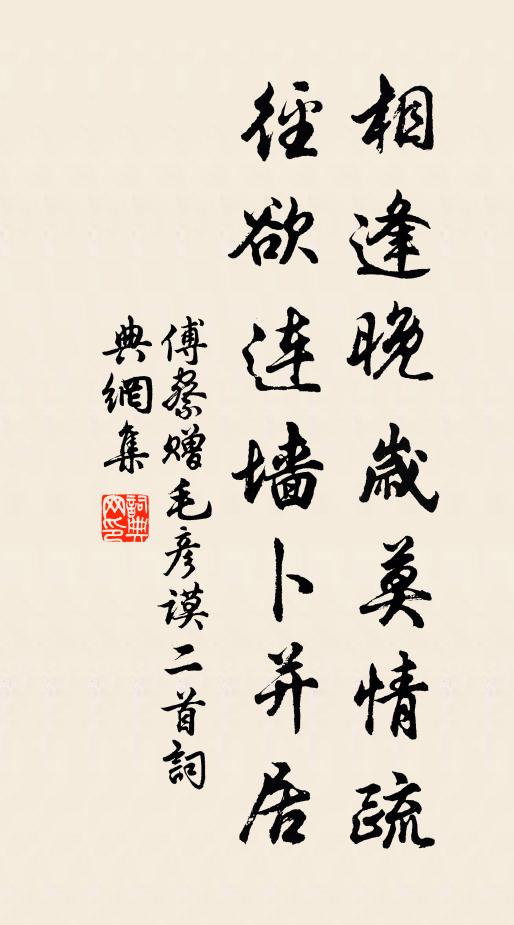 相逢晚歲莫情疏
徑欲连墙卜并居
傅察赠毛彦谟二首詞
典網集
詞典
网印